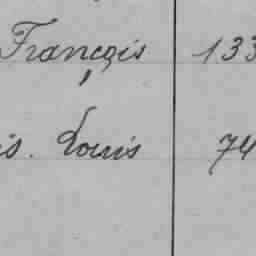 François 133
is. Louis 74